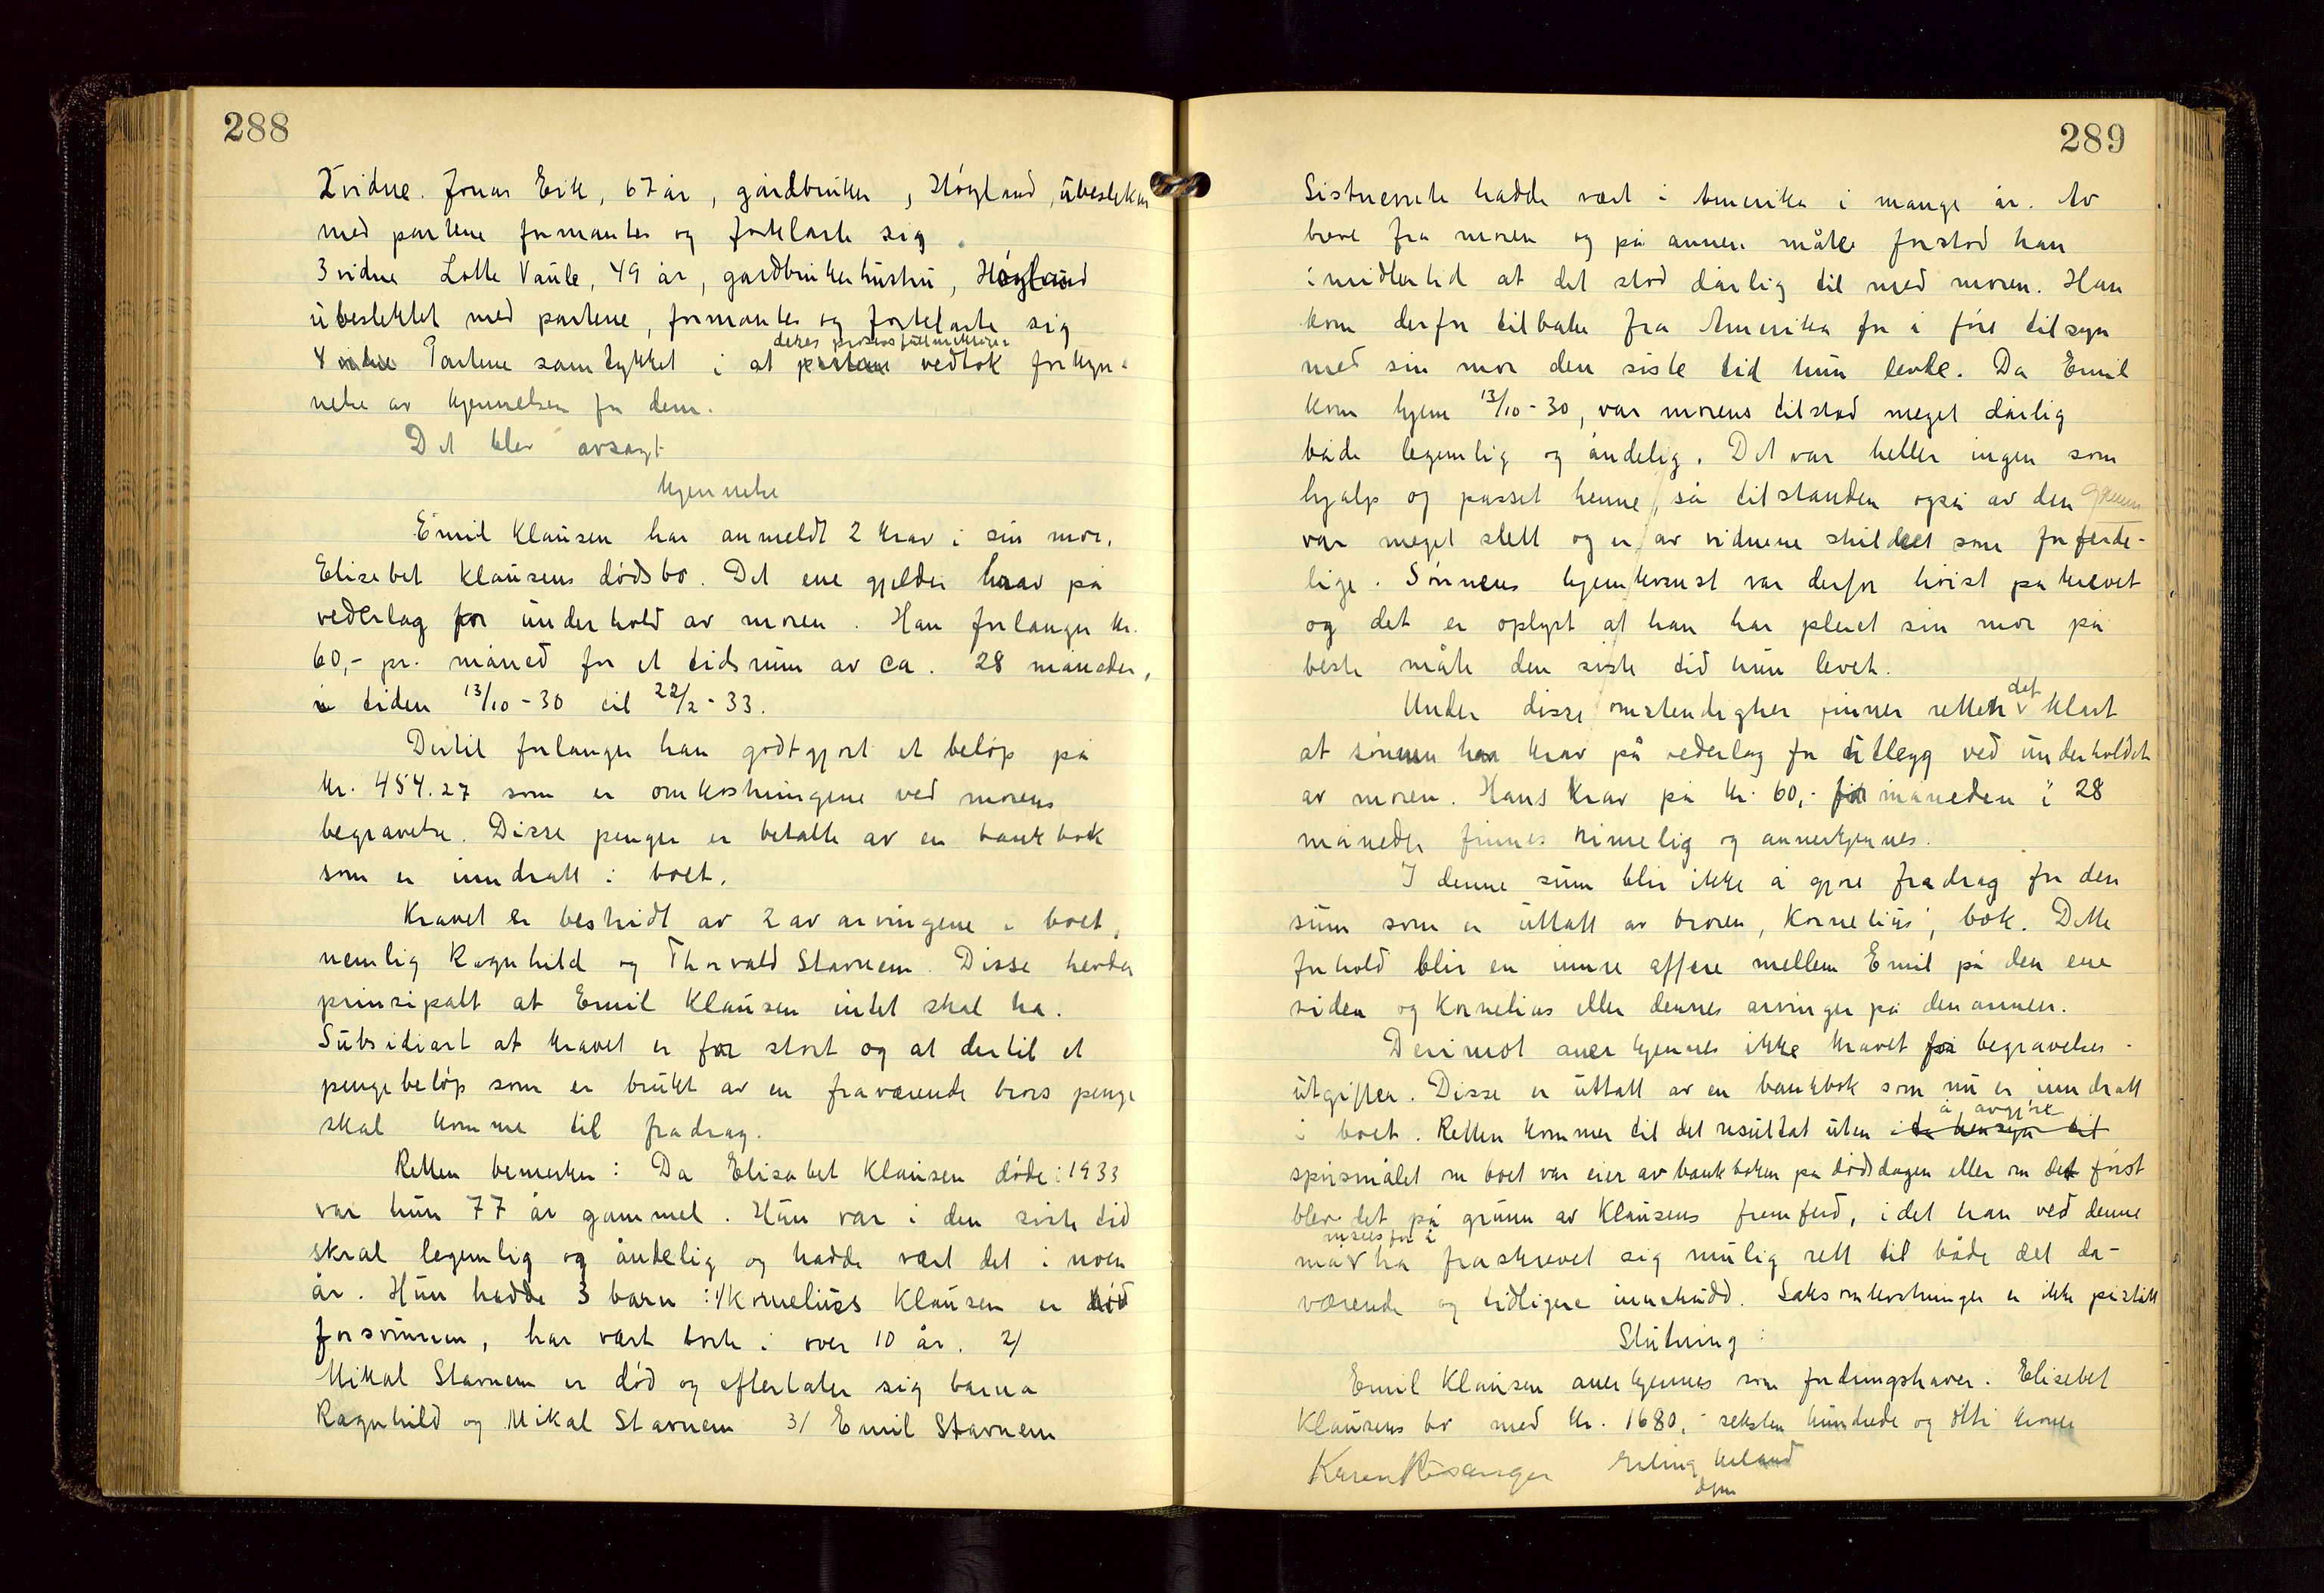 288
2 vidne. Jonas Eik, 67 år, gårdbruker, Høyland, ubeslektet
med partene formantes og forklarte sig.
3 vidne Lotte Vaule, 49 år, gårdbrukerhustru, Høyland
ubeslektet med partene, formantes og forklarte sig
deres prosessfullmektiger
4 vidne Partene samtykket i at partene vedtok forkyn-
nelse av kjennelsen for dem.
Det blev avsagt
kjennelse
Emil Klausen har anmeldt 2 krav i sin mor,
Elisebet Klausens dødsbo. Det ene gjelder krav på
vederlag for underhold av moren. Han forlanger kr.
60,- pr. måned for et tidsrum av ca. 28 måneder,
i tiden 13/10-30 til 22/2-33.
Dertil forlanger han godtgjort et beløp på
kr. 454.27 som er omkostningene ved morens
begravelse. Disse penger er betalt av en bankbok
som er inndratt i boet.
Kravet er bestridt av 2 av arvingene i boet,
nemlig Ragnhild og Thorvald Stavnem. Disse hevder
prinsipalt at Emil Klausen intet skal ha.
Subsidiært at kravet er for stort og at dertil et
pengebeløp som er brukt av en fraværende brors penge
skal komme til fradrag.
Retten bemerker: Da Elisabet Klausen døde i 1933
var hun 77 år gammel. Hun var i den siste tid
skral legemlig og åndelig og hadde vært det i noen
år. Hun hadde 3 barn: 1/ Kornelius Klausen er død
forsvunnen, har vært borte i over 10 år. 2/
Mikal Stavnem er død og efterlater sig barna
Ragnhild og Mikal Stavnem 3/ Emil Stavnem
289
Sistnevnte hadde vært i Amerika i mange år. Av
breve fra moren og på annen måte forstod han
imidlertid at det stod dårlig til med moren. Han
kom derfor tilbake fra Amerika for å føre tilsyn
med sin mor den siste tid hun levde. Da Emil
kom hjem 13/10-30, var morens tilstand meget dårlig
både legemlig og åndelig. Det var heller ingen som
hjalp og passet henne, så tilstanden også av den grunn
var meget slett og er av vidnene skildret som forferde-
lige. Sønnens hjemkomst var derfor høist påkrevet
og det er oplyst at han har pleiet sin mor på
beste måte den siste tid hun levet.
Under disse omstendigheter finner retten det klart
at sønnen har krav på vederlag for utlegg ved underholdet
av moren. Hans krav på kr. 60,- for måneden i 28
måneder finnes rimelig og annerkjennes.
I denne sum blir ikke å gjøre fradrag for den
sum som er uttatt av broren, Kornelius', bok. Dette
forhold blir en innre affære mellem Emil på den ene
siden og Kornelius eller dennes arvinger på den annen.
Derimot anerkjennes ikke kravet for begravelses-
utgifter. Disse er uttatt av en bankbok som nu er inndratt
å avgjøre
i boet. Retten kommer til det resultat uten i de hensyn til
spørsmålet om boet var eier av bankboken på dødsdagen eller om det først
blev det på grunn av Klausens fremferd, idet han ved denne
ansees for å
må ha fraskrevet sig mulig rett til både det da-
værende og tidligere innskudd. Saksomkostninger er ikke påstått
Slutning:
Emil Klausen anerkjennes som fordringshaver i Elisebet
Klausens bo med kr. 1680,- seksten hundrede og otti kroner
Karen Risanger Erling
dfm